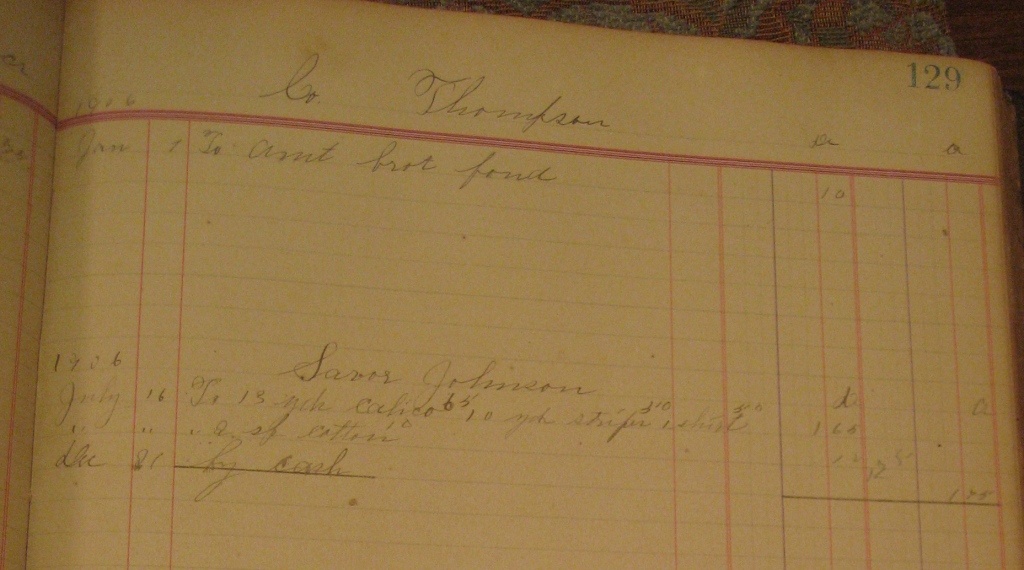 129
1906 Co. Thompson
Jan 1 To amt brot forud 10
1906 Savor Johnson
July 16 To 13 yds calico 65 10 yds stripe 50 1 shirt 50 1 65
" " " 2 sp cotton 10 10
Dec 21 by cash 175